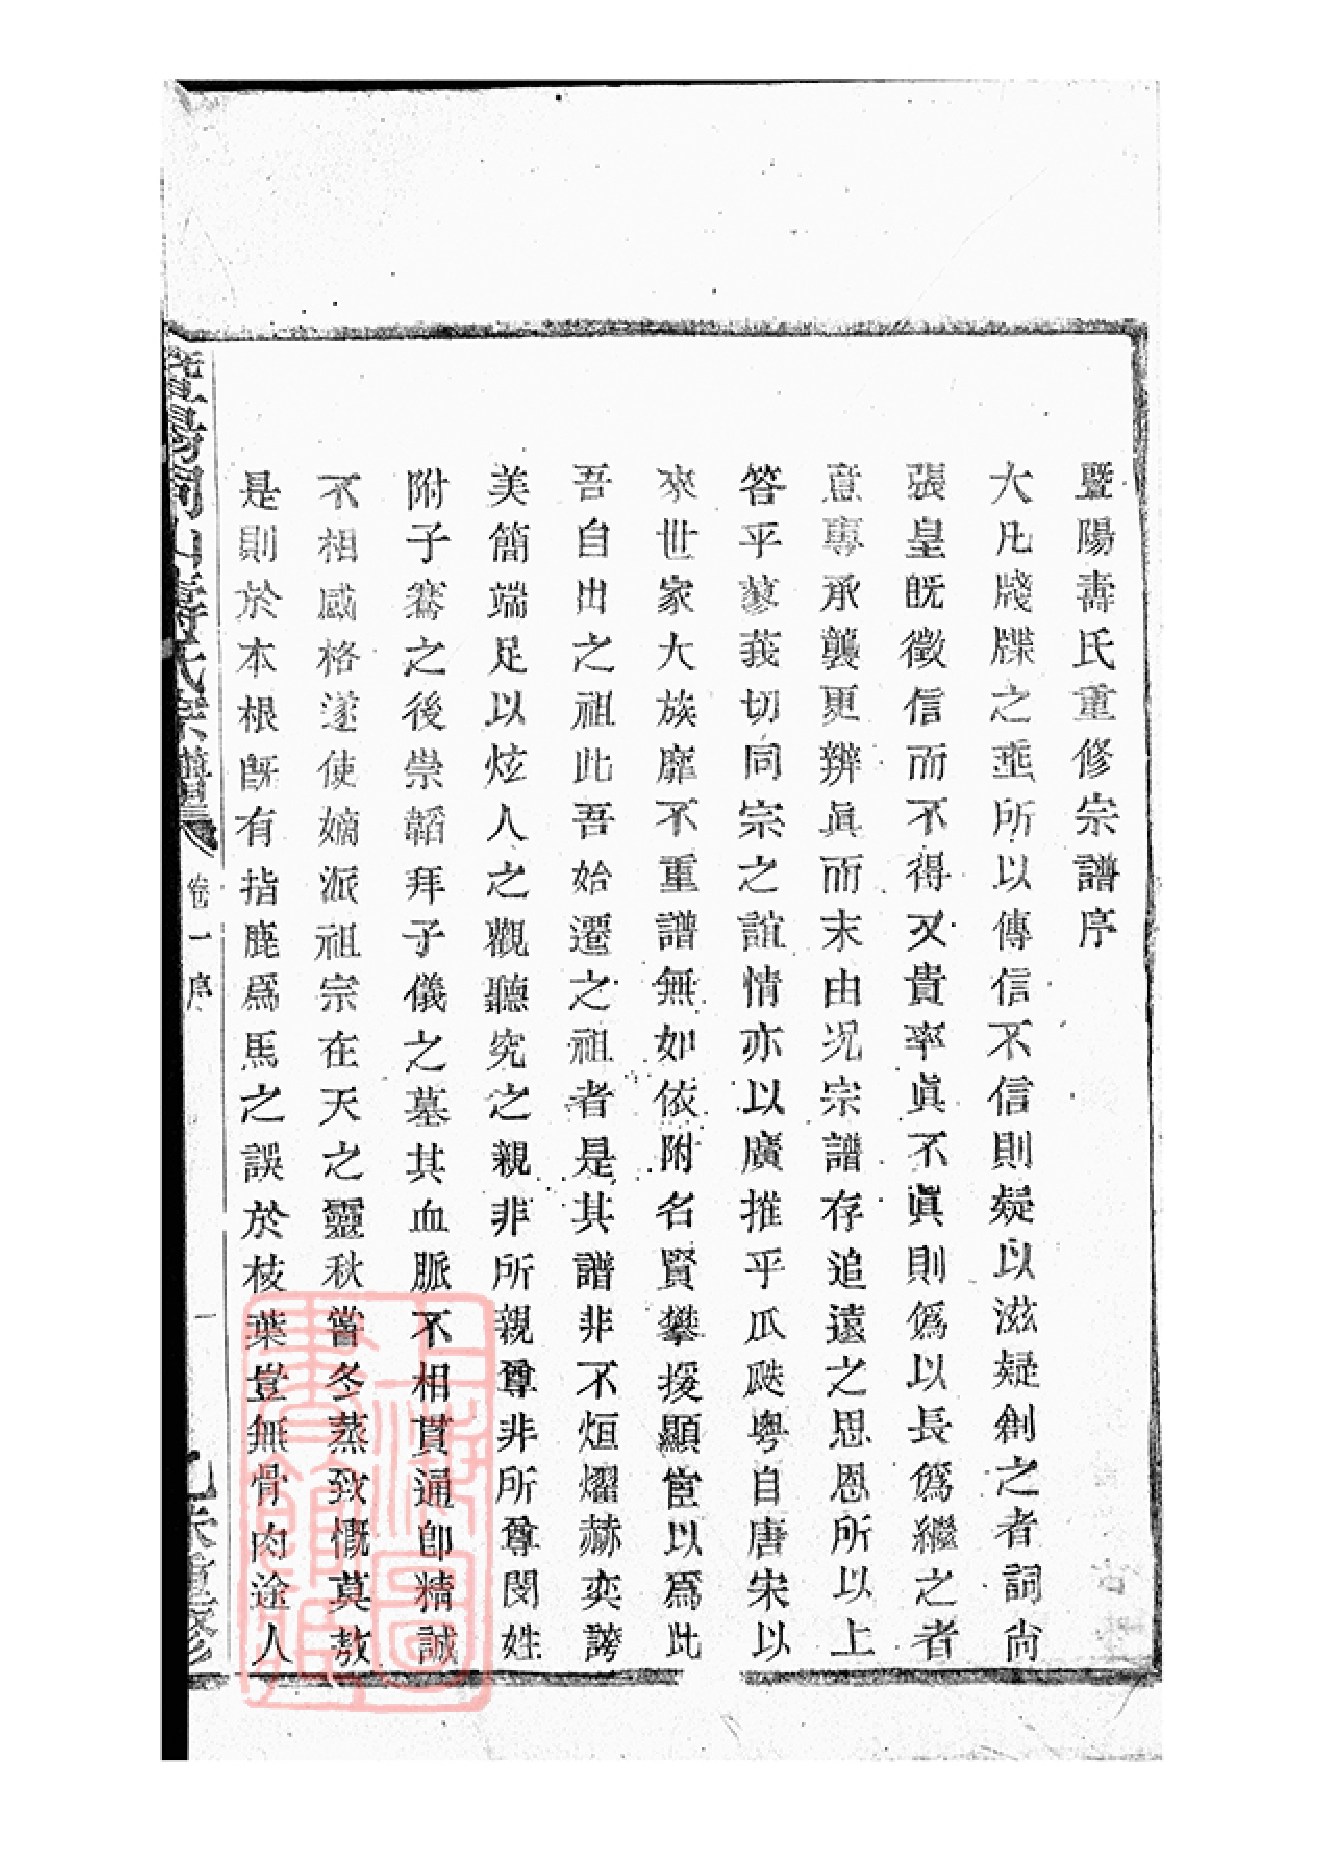 暨陽壽氏重修宗譜序
大凡牋牒之垂所以傳信不信則疑以滋疑創之者詞尚
張皇旣徵信而不得又貴率眞不眞則僞以長僞繼之者
意專承襲更辨眞而末由况宗譜存追遠之思恩所以上
答乎蓼莪切同宗之誼情亦以廣推乎瓜瓞粤自唐宋以
來世家大族靡不重譜無如依附名賢攀援顯宦以爲此
吾自出之祖此吾始遷之祖者是其譜非不烜燿赫奕誇
美簡端足以炫人之觀聽究之親非所親尊非所尊閔姓
附子騫之後崇韜拜子儀之墓其血脈不相貫通卽精誠
不相感格遂使嫡派祖宗在天之靈秋嘗冬蒸致慨莫敖
是則於本根旣有指鹿爲馬之誤於枝葉豈無骨肉途人
暨陽開山壽氏宗譜 卷一序 一 己未重修
上海圖書館藏